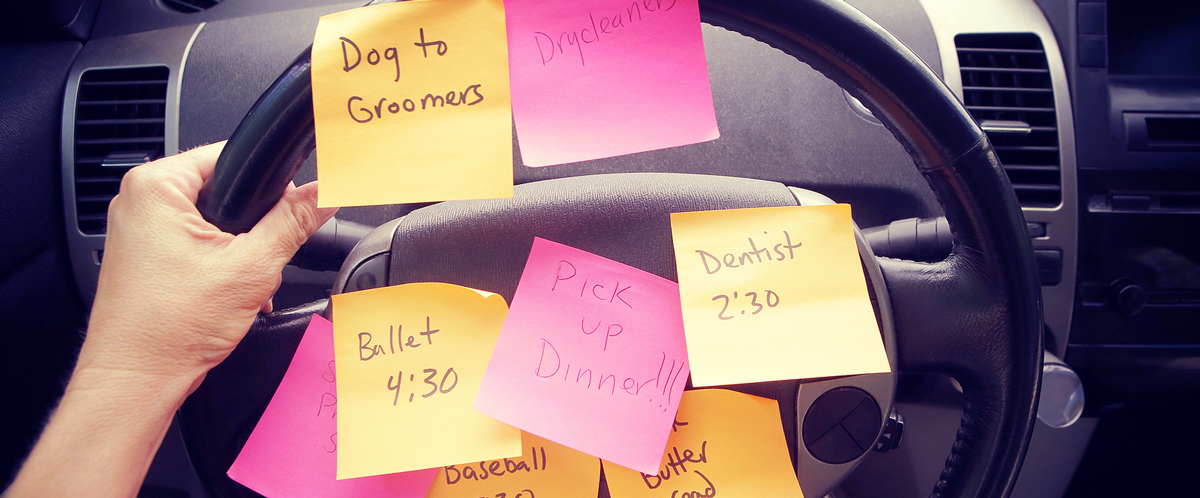 Dog to
Groomers
Drycleaners
Dentist
2:30
Pick
up
Dinner!!!
Ballet
4:30
Baseball
Butter